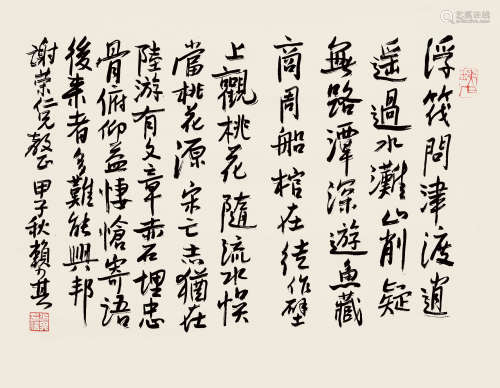 浮筏問津渡逍
遥過水灘山削疑
無路潭深遊魚藏
商周船棺在徒作壁
上觀桃花隨流水悮
當桃花源宋亡志猶在
陸游有文章赤石埋忠
骨俯仰益悽愴寄語
後来者多難能興邦
謝榮仁兄教正甲子秋賴少其